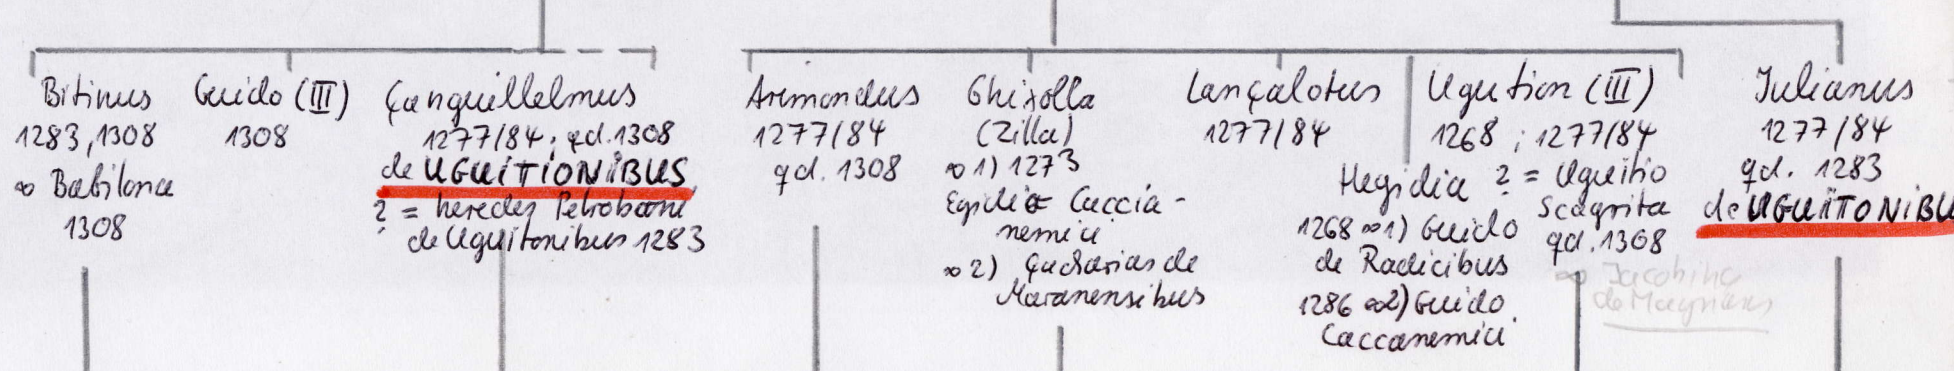 Bitinus
1283, 1308
∞ Babilona
1308
Guido (III)
1308
Çanguillelmus
1277/84; qd. 1308
de UGUITIONIBUS
? = heredes Petroboni
de Uguitonibus 1283
Aremondus
1277/84
qd. 1308
Ghixolla
(Zilla)
∞ 1) 1273
Egidio Caccia-
nemici
∞ 2) Çacharias de
Maranensibus
Lançalotus
1277/84
Hegidia
1268 ∞ 1) Guido
de Radicibus
1286 ∞ 2) Guido
Caccanemici
Ugution (III)
1268; 1277/84
? = Uguitio
Scagrita
qd. 1308
∞ Jacobina
de Magnanis
Iulianus
1277/84
qd. 1283
de UGUITONIBU